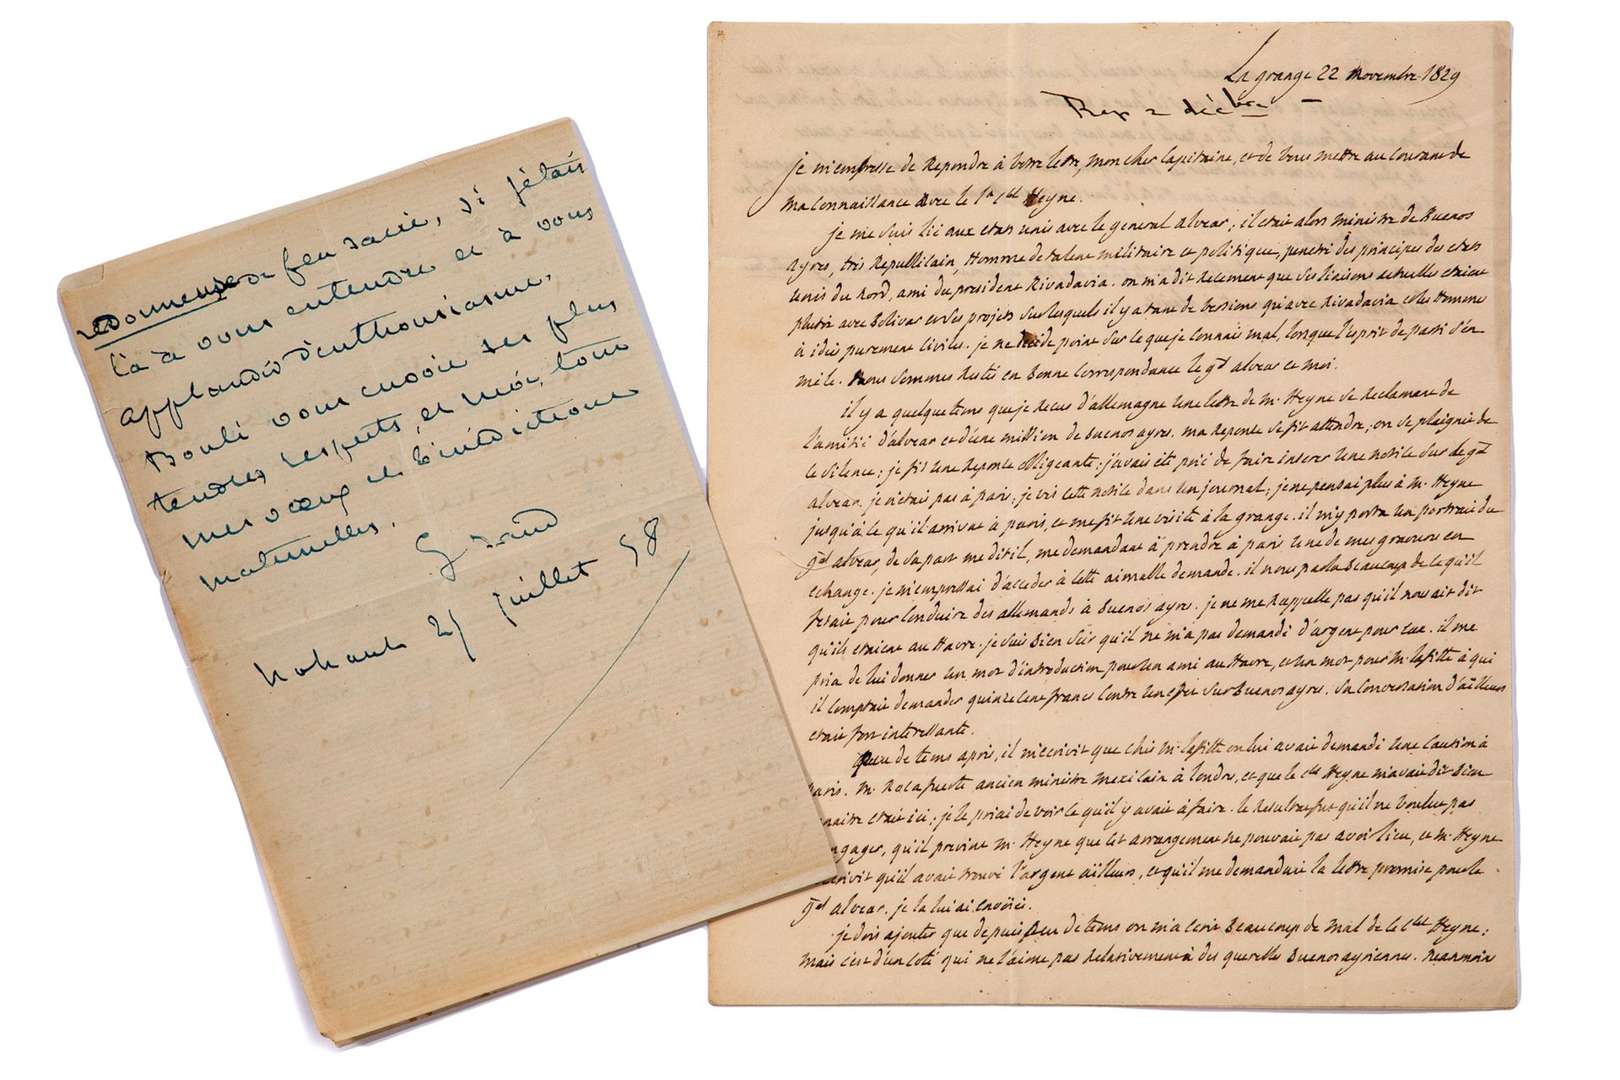 feu sacré, si j'étais
là à vous entendre et à vous
applaudir d'enthousiasme.
Bouli vous envoie ses plus
tendres respects, et moi, tous
mes vœux et bénédictions
maternelles.
G Sand
Nohant 21 juillet 58
La grange 22 novembre 1829
Rep 2 décbre
je m'empresse de repondre à votre lettre, mon cher Capitaine, et de vous mettre au courant de
ma connaissance avec le Lt Cel Heyne.
je me suis lié aux etats unis avec le general alvear; il etait alors ministre de Buenos
ayres, très Republicain, homme de talent militaire et politique, penetré des principes des etats
unis du Nord, ami du president Rivadavia. on m'a dit recement que ses liaisons actuelles etaient
plutot avec Bolivar et ses projets sur lesquels il y a tant de versions qu'avec Rivadavia et les hommes
à idées purement civiles. je ne décide point sur ce que je connais mal, lorsque l'esprit de parti s'en
mêle. nous sommes restés en bonne correspondance le gal alvear et moi.
il y a quelque tems que je reçus d'allemagne une lettre de m. Heyne se reclamant de
l'amitié d'alvear et d'une mission de buenos ayres. ma reponse se fit attendre; on se plaignit de
ce silence; je fis une reponse obligeante; j'avais eté prié de faire inserer une notice sur le gal
alvear. je n'etais pas à paris; je vis cette notice dans un journal; je ne pensai plus à m. Heyne
jusqu'à ce qu'il arrivat à paris, et me fit une visite à la grange. il m'y porta un portrait du
gal alvear, de sa part me dit il, me demandant à prendre à paris une de mes gravures en
echange. je m'empressai d'acceder à cette aimable demande. il nous parla beaucoup de ce qu'il
fesait pour conduire des allemands à Buenos ayres. je ne me rappelle pas qu'il nous ait dit
qu'ils etaient au havre. je suis bien sûr qu'il ne m'a pas demandé d'argent pour eux. il me
pria de lui donner un mot d'introduction pour un ami au havre, et un mot pour M. lafitte à qui
il comptait demander quinze cent francs contre une sur Buenos ayres. sa conversation d'ailleurs
etait fort interessante.
peu de tems après, il m'ecrivit que chès m. lafitte on lui avait demandé une caution à
paris. M. Rocafuerte ancien ministre mexicain à londres, et que le cel Heyne m'avait dit bien
naitre etait ici; je le priai de voir ce qu'il y avait à faire. le resultat fut qu'il ne voulut pas
ngager, qu'il prevint m. Heyne que cet arrangement ne pouvait pas avoir lieu, et m. Heyne
ecrivit qu'il avait trouvé l'argent ailleurs, et qu'il me demandait la lettre promise pour le
gal alvear. je la lui ai envoiée.
je dois ajouter que depuis peu de tems on m'a ecrit beaucoup de mal de ce Cel Heyne;
mais c'est d'un coté qui ne l'aime pas relativement à des querelles Buenos ayriennes. neanmoins